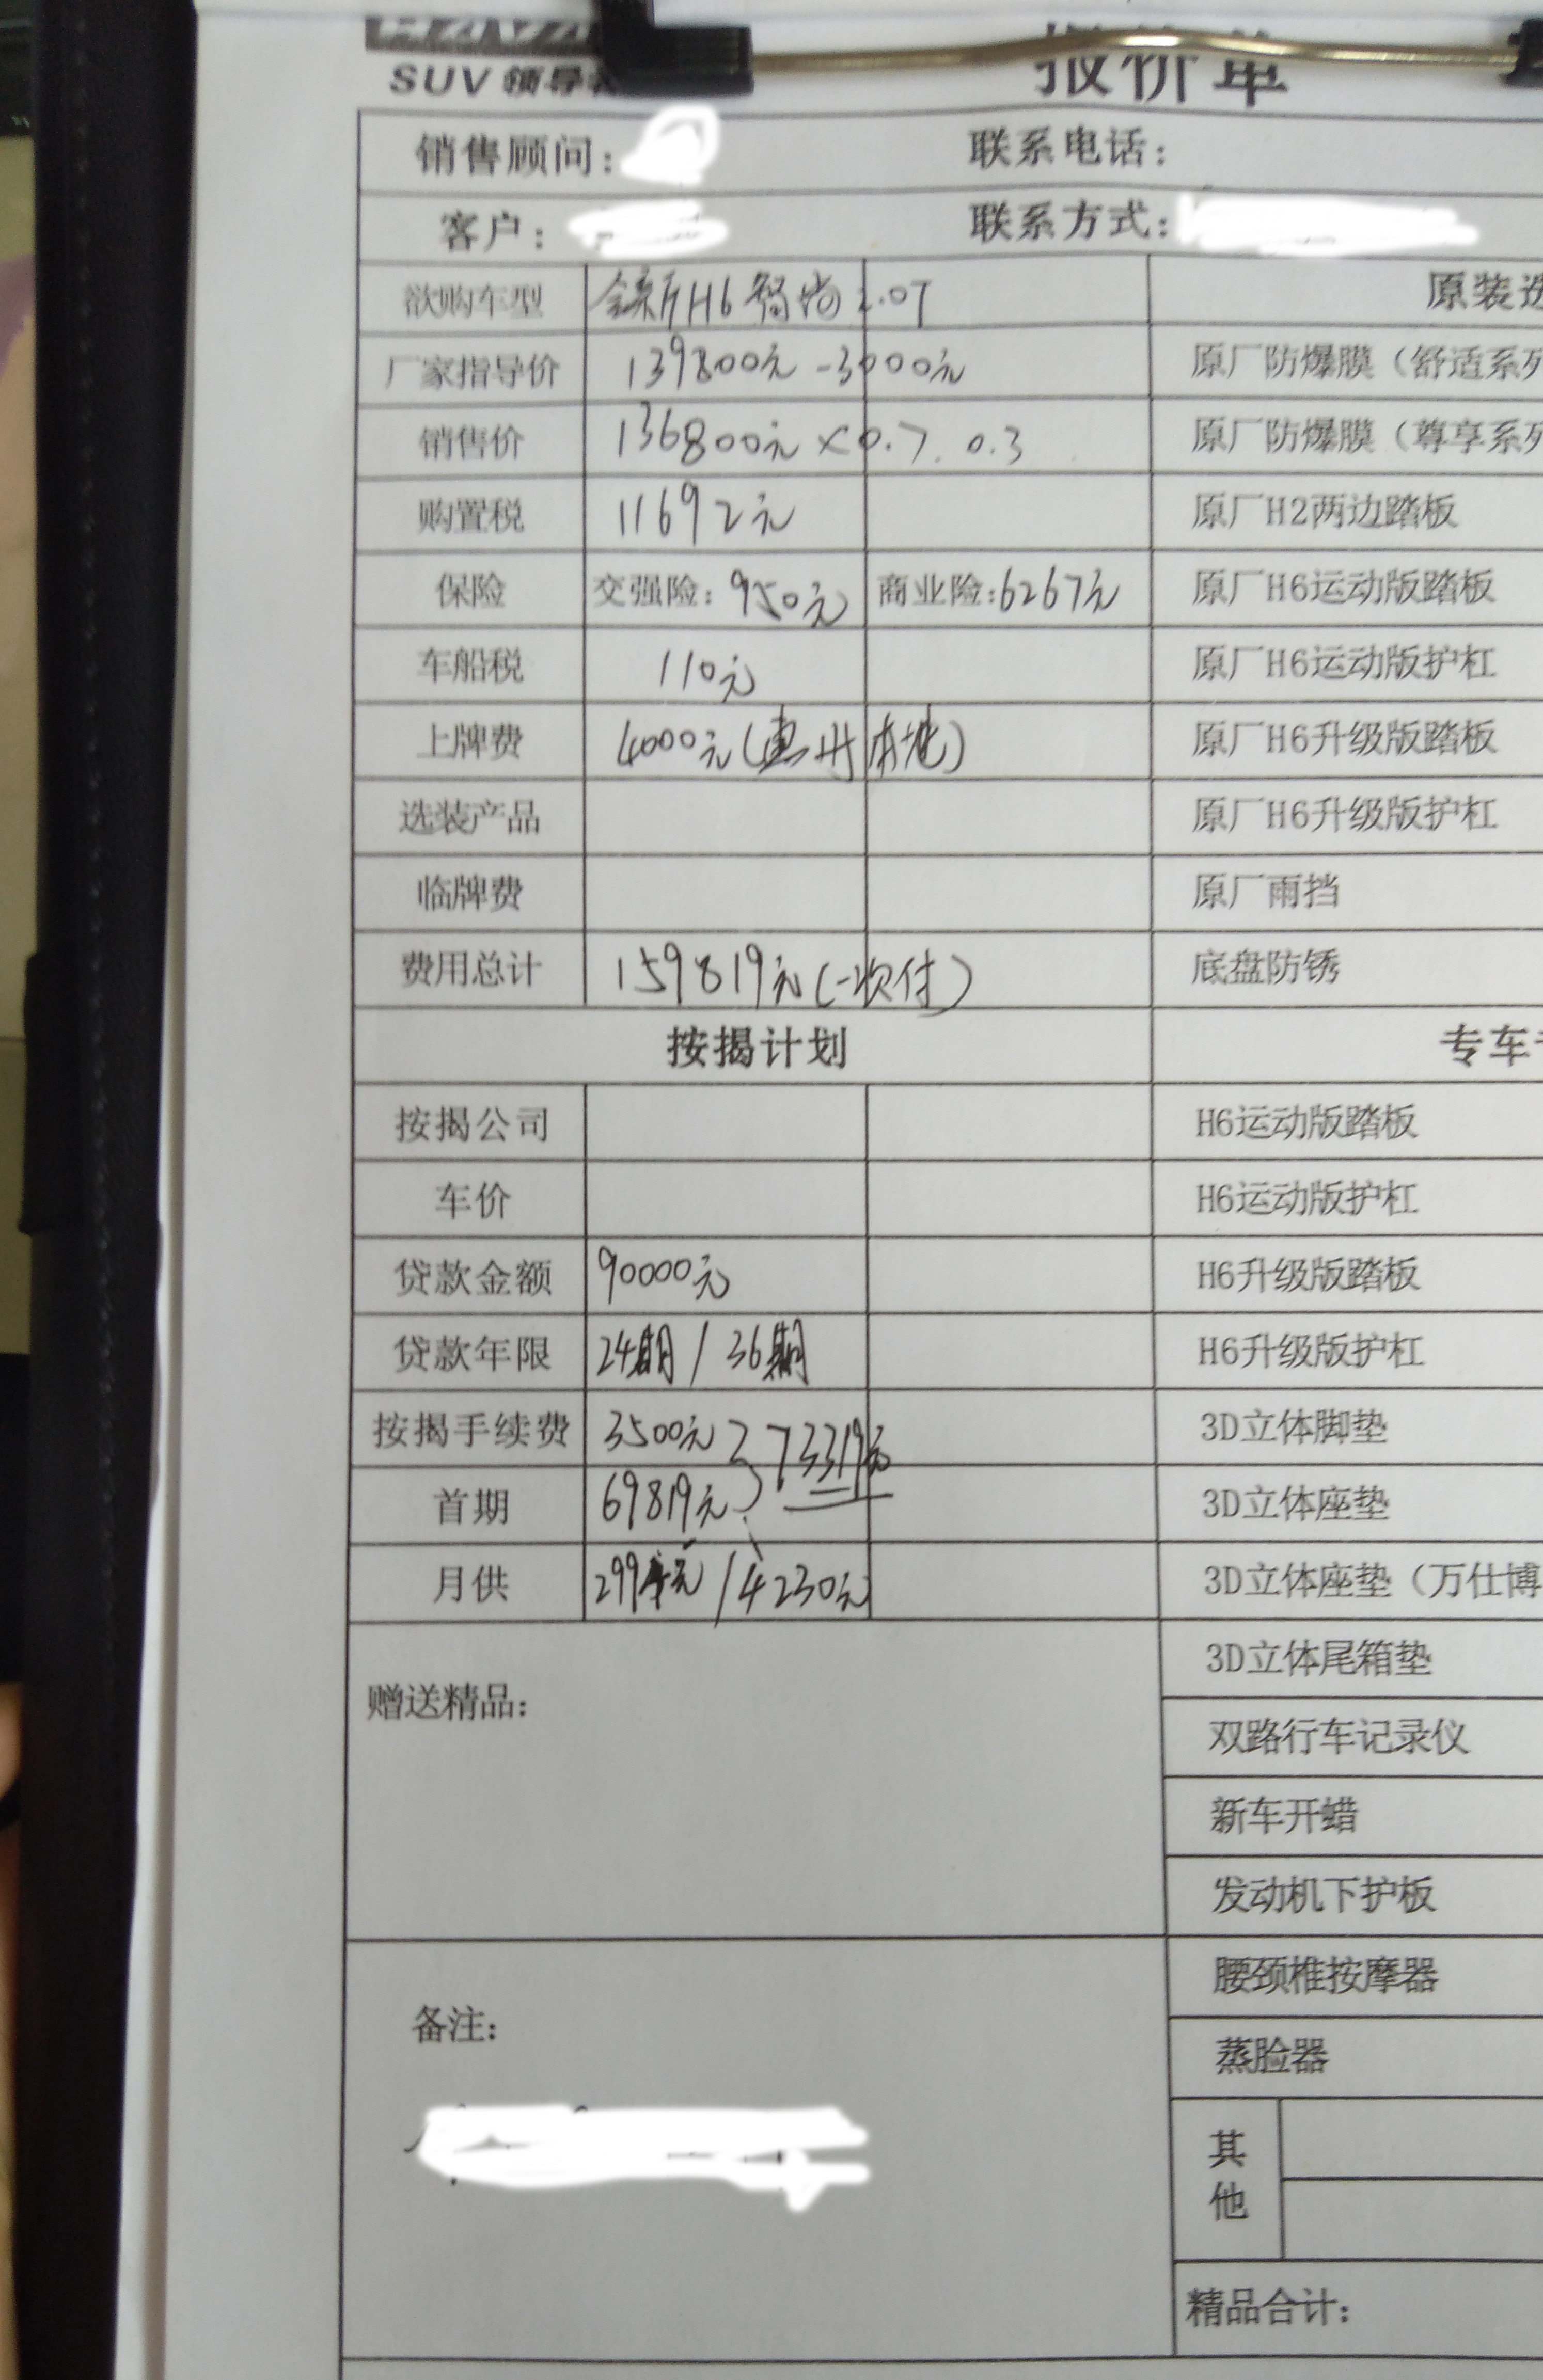 SUV 领导
报价单
销售顾问： 联系电话：
客户： 联系方式：
欲购车型 全新H6智尚2.0T 原装选
厂家指导价 139800元-3000元 原厂防爆膜（舒适系列
销售价 136800元×0.7. 0.3 原厂防爆膜（尊享系列
购置税 11692元 原厂H2两边踏板
保险 交强险：950元 商业险：6267元 原厂H6运动版踏板
车船税 110元 原厂H6运动版护杠
上牌费 4000元(惠州本地) 原厂H6升级版踏板
选装产品 原厂H6升级版护杠
临牌费 原厂雨挡
费用总计 159819元(一次付) 底盘防锈
按揭计划 专车
按揭公司 H6运动版踏板
车价 H6运动版护杠
贷款金额 90000元 H6升级版踏板
贷款年限 24期/36期 H6升级版护杠
按揭手续费 3500元 73319元 3D立体脚垫
首期 69819元 3D立体座垫
月供 2994元/4230元 3D立体座垫（万仕博
赠送精品： 3D立体尾箱垫
双路行车记录仪
新车开蜡
发动机下护板
备注： 腰颈椎按摩器
蒸脸器
其他
精品合计：